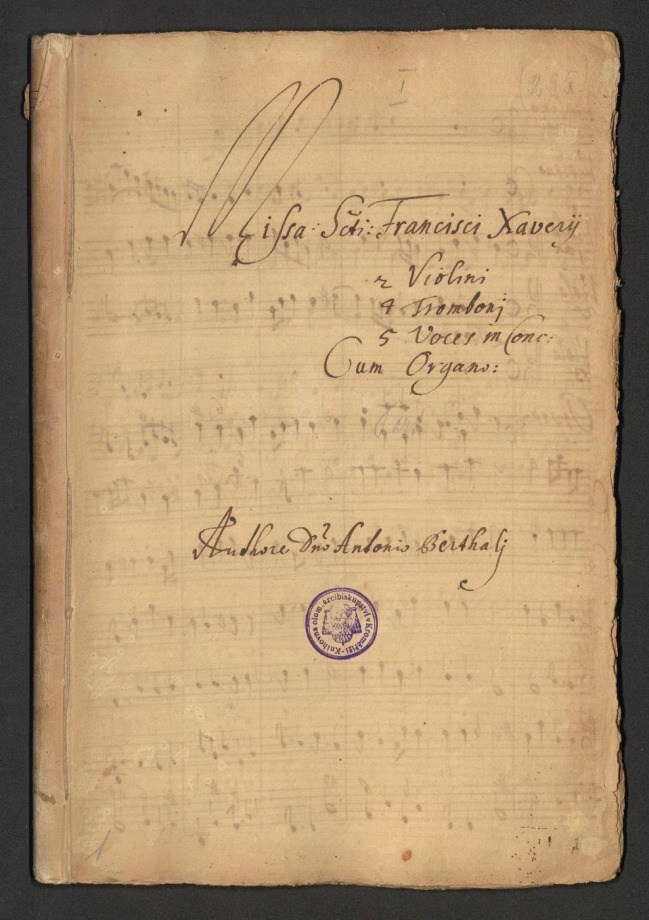 I
Missa Scti: Francisci Xaverij
2 Violini
4 Tromboni
5 Voces in Conc:
Cum Organo:
Authore Dno Antonio Berthalj
Knihovna olom. arcibiskupství v Kroměříži
1